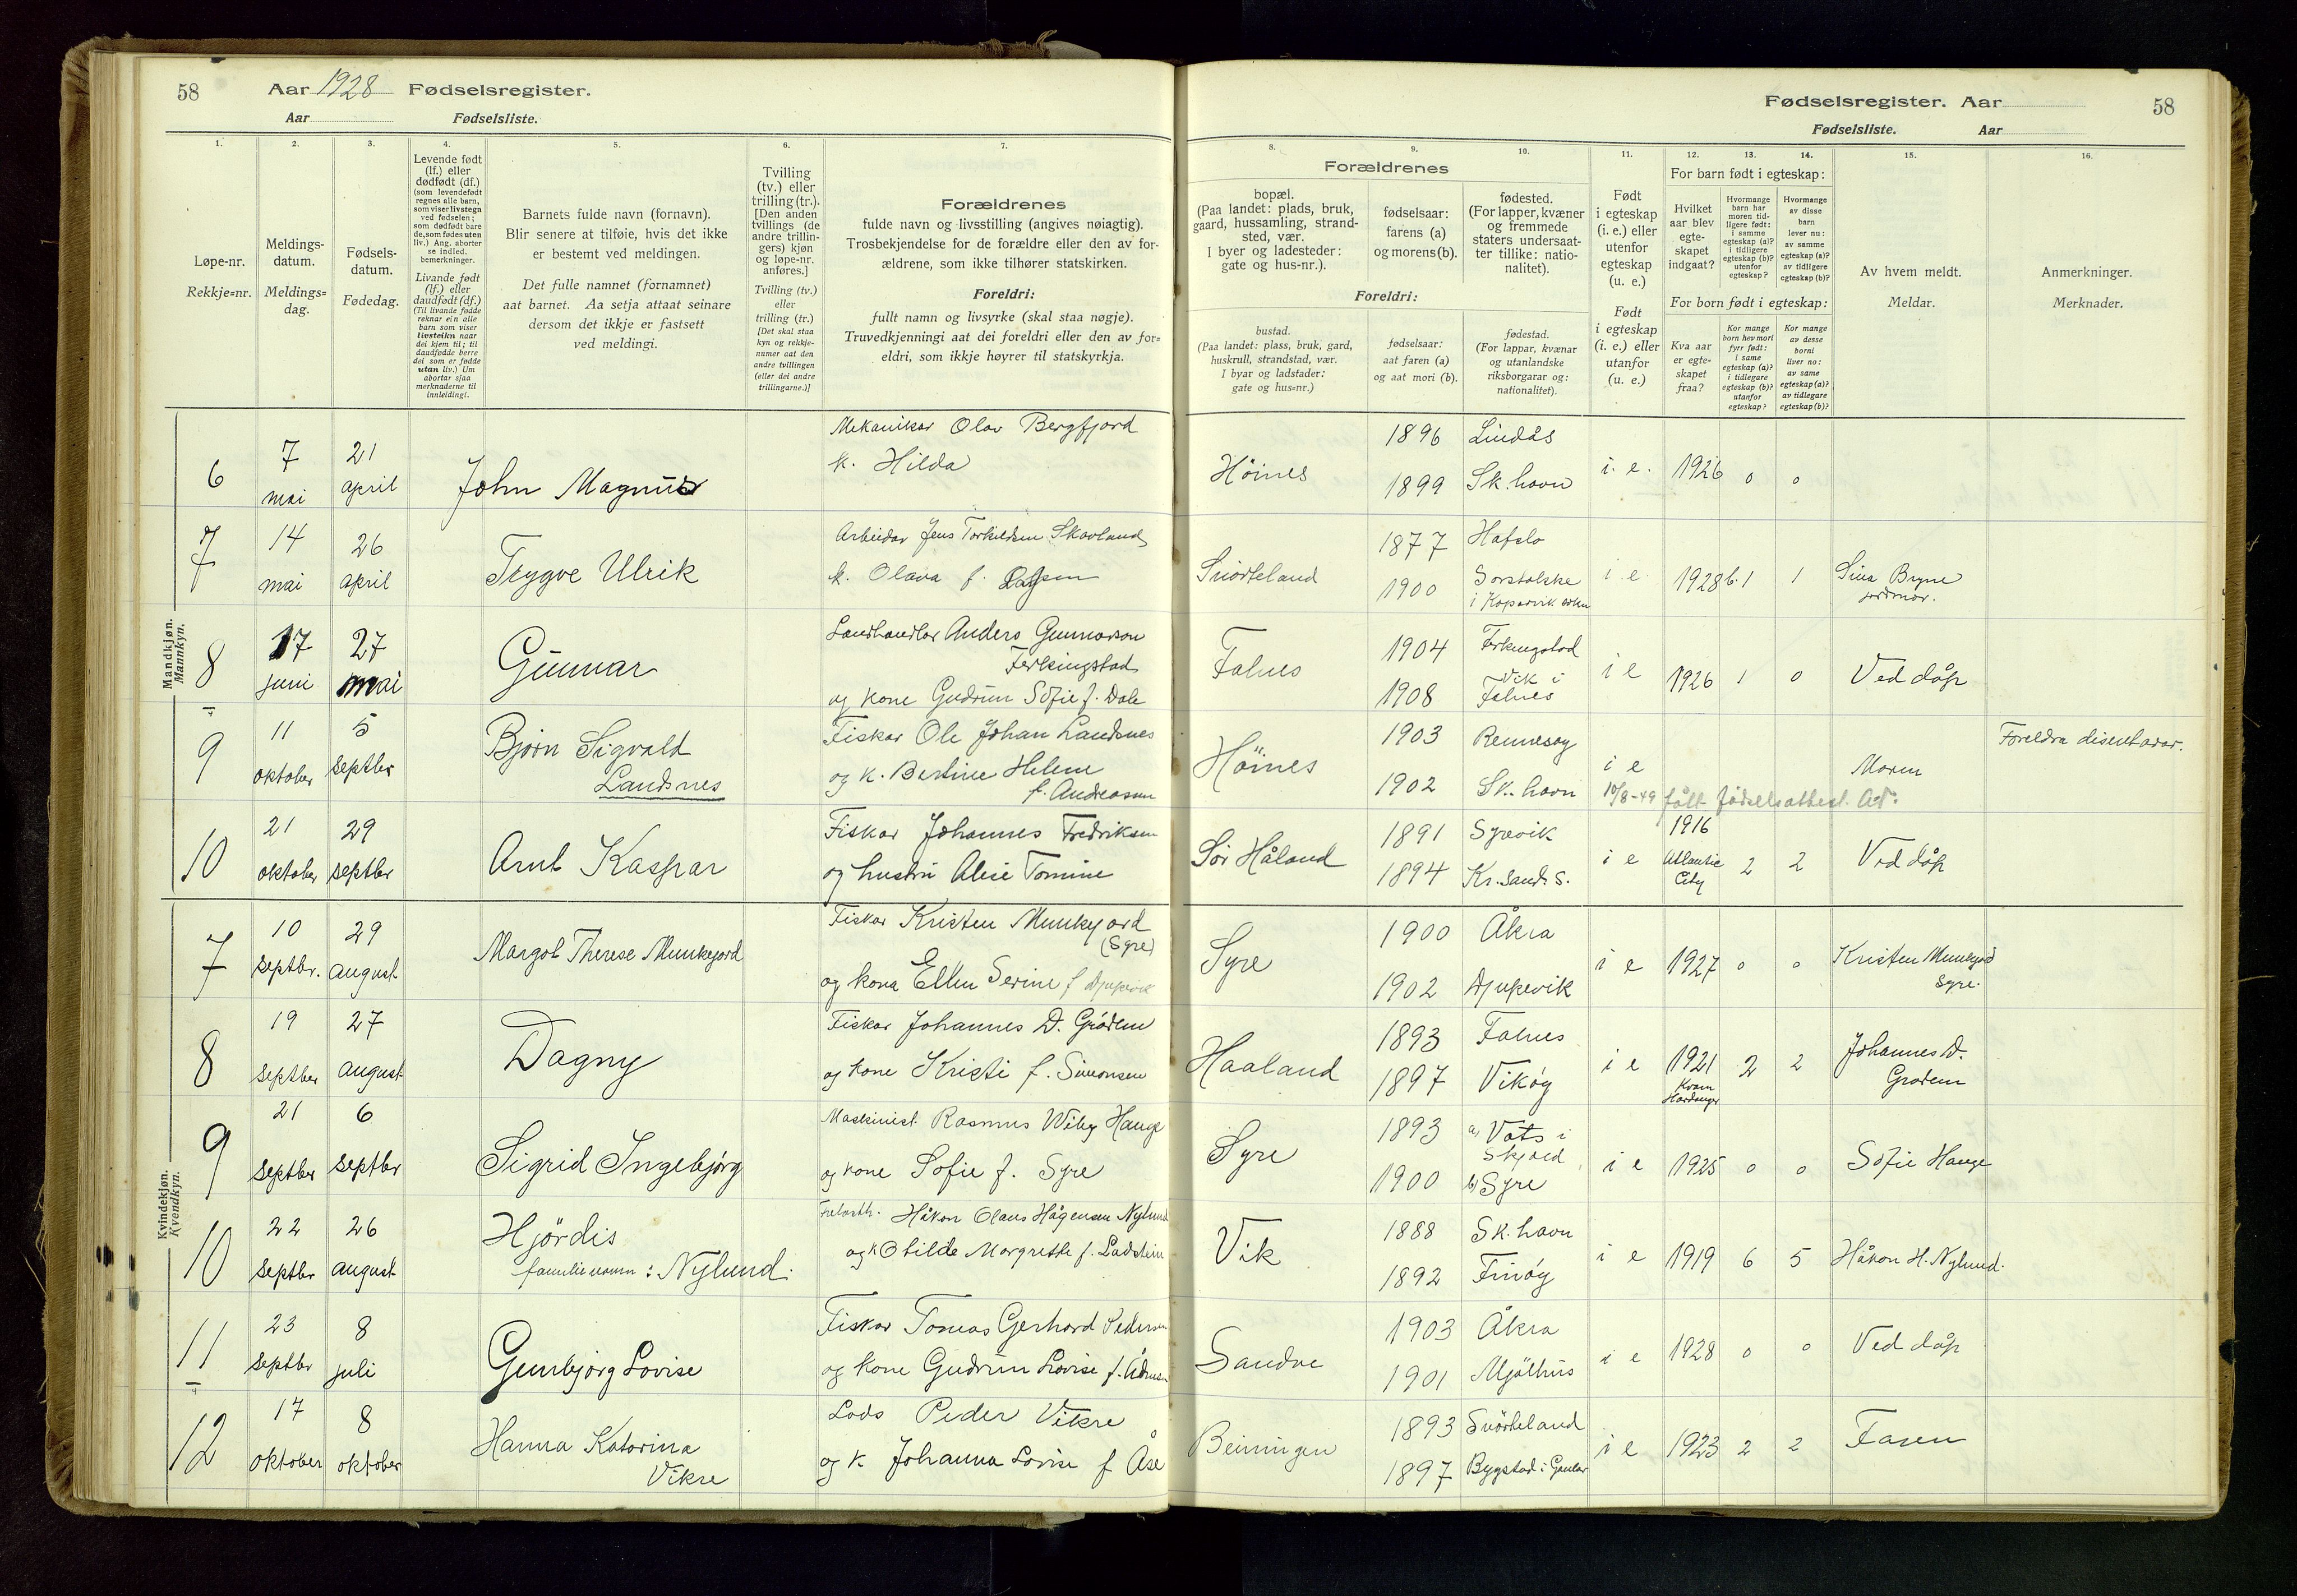 58 Aar 1928 Fødselsregister.
Aar Fødselsliste.
Fødselsregister. Aar 58
Fødselsliste. Aar
1. 2. 3. 4. 5. 6. 7. 8. 9. 10. 11. 12. 13. 14. 15. 16.
Løpe-nr.
Rekkje=nr.
Meldings-
datum.
Meldings=
dag.
Fødsels-
datum.
Fødedag.
Levende født
(lf.) eller
dødfødt (df.)
(som levendefødt
regnes alle barn,
som viser livstegn
ved fødselen;
som dødfødt bare
de, som fødes uten
liv.) Ang. aborter
se indled.
bemerkninger.
Livande født
(lf.) eller
daudfødt (df.)
(Til livande fødde
reknar ein alle
barn som viser
livsteikn naar
dei kjem til; til
daudfødde berre
dei som er fødde
utan liv.) Um
abortar sjaa
merknaderne til
innleidingi.
Barnets fulde navn (fornavn).
Blir senere at tilføie, hvis det ikke
er bestemt ved meldingen.
Det fulle namnet (fornamnet)
aat barnet. Aa setja attaat seinare
dersom det ikkje er fastsett
ved meldingi.
Tvilling
(tv.) eller
trilling (tr.).
[Den anden
tvillings (de
andre trillin-
gers) kjøn
og løpe-nr.
anføres.]
Tvilling (tv.)
eller
trilling (tr.)
[Det skal staa
kyn og rekkje-
numer aat den
andre tvillingen
(eller dei andre
trillingarne.)]
Forældrenes
fulde navn og livsstilling (angives nøiagtig).
Trosbekjendelse for de forældre eller den av for-
ældrene, som ikke tilhører statskirken.
Foreldri:
fullt namn og livsyrke (skal staa nøgje).
Truvedkjenningi aat dei foreldri eller den av for=
eldri, som ikkje høyrer til statskyrkja.
Forældrenes
bopæl.
(Paa landet: plads, bruk,
gaard, hussamling, strand-
sted, vær.
I byer og ladesteder:
gate og hus-nr.).
fødselsaar:
farens (a)
og morens (b).
fødested.
(For lapper, kvæner
og fremmede
staters undersaat-
ter tillike: natio-
nalitet).
Foreldri:
bustad.
(Paa landet: plass, bruk, gard,
huskrull, strandstad, vær.
I byar og ladstader:
gate og hus=nr.)
fødselsaar:
aat faren (a)
og aat mori (b).
fødestad.
(For lappar, kvænar
og utanlandske
riksborgarar og:
nationalitet).
Født
i egteskap
(i. e.) eller
utenfor
egteskap
(u. e.)
Født
i egteskap
(i. e.) eller
utanfor
(u. e.)
For barn født i egteskap:
Hvilket
aar blev
egte-
skapet
indgaat?
Hvormange
barn har
moren tid-
ligere født:
i samme
egteskap (a)?
i tidligere
egteskap (b)?
utenfor
egteskap?
Hvormange
av disse
barn
lever nu:
av samme
egteskap (a)?
av tidligere
egteskap (b)?
For born født i egteskap:
Kva aar
er egte=
skapet
fraa?
Kor mange
born hev mori
fyrr født:
i same
egteskap (a)?
i tidlegare
egteskap (b)?
utanfor
egteskap?
Kor mange
av desse
borni
liver no:
av same
egteskap (a)?
av tidlegare
egteskap (b)?
Av hvem meldt.
Meldar.
Anmerkninger.
Merknader.
Mandkjøn.
Mannkyn.
6 7 mai 21 april John Magnus
Mekanikar Olav Bergfjord
k. Hilda
Höines 1896 Lindås
1899 Sk.havn i. e. 1926 0 0
7 14 mai 26 april Trygve Ulrik
Arbeidar Jens Torkildsen Skavland
k. Olava f.
Snörteland 1877 Hafslo
1900 i Kopervik sokn i e 1928 b. 1 1 Sina Bryne
jordmor.
8 17 juni 27 mai Gunnar
Landhandlar Anders Gunnarson
Ferkingstad
og kone Gudrun Sofie f. Dale
Falnes 1904 Ferkingstad
1908 Vik i
Falnes i e 1926 1 0 Ved dåp
9 11 oktober 5 septbr Björn Sigvald
Landsnes
Fiskar Ole Johan Landsnes
og k. Bertine Helene
f. Andreasen
Höines 1903 Rennesøy
1902 Sk.havn i e Moren Foreldra disentarar.
10/8-49 fått fødselsattest.
10 21 oktober 29 septbr Arnt Kaspar
Fiskar Johannes Fredriksen
og hustru Alise Tomine
Sör Håland 1891 Syrevik
1894 Kr.sand S. i e 1916
Atlantic
City 2 2 Ved dåp
Kvindekjøn.
Kvendkyn.
7 10 septbr. 29 august Margot Therese Munkejord
Fiskar Kristen Munkejord
(Syre)
og kona Ellen Serine f Djupevik
Syre 1900 Åkra
1902 Djupevik i e 1927 0 0 Kristen Munkejord
Syre.
8 19 septber 27 august Dagny
Fiskar Johannes D. Grödem
og kone Kristi f. Simonsen
Haaland 1893 Falnes
1897 Vikøy i e 1921
Kvam
Hardanger 2 2 Johannes D.
Grødem
9 21 septbr 6 septbr Sigrid Ingebjørg
Maskinist Rasmus Wiby Hauge
og kone Sofie f. Syre
Syre 1893 a) Vats i
Skjold
1900 b) Syre i e 1925 0 0 Sofie Hauge
10 22 septbr 26 august Hjördis
familienavn: Nylund.
Håkon Olaus Hågensen Nylund
og k Otilde Margrethe f. Ladstein
Vik 1888 Sk.havn
1892 Finøy i e 1919 6 5 Håkon H. Nylund.
11 23 septbr 8 juli Gunbjørg Lovise
Fiskar Tomas Gerhard Pedersen
og kone Gudrun Lovise f.
Sandve 1903 Åkra
1901 Mjölhus i e 1928 0 0 Ved dåp
12 17 oktober 8 oktober Hanna Katarina
Vikre
Lods Peder Vikre
og k Johanna Lovise f Åse
Beiningen 1893 Snörteland
1897 Bygstad i Gaular i e 1923 2 2 Faren